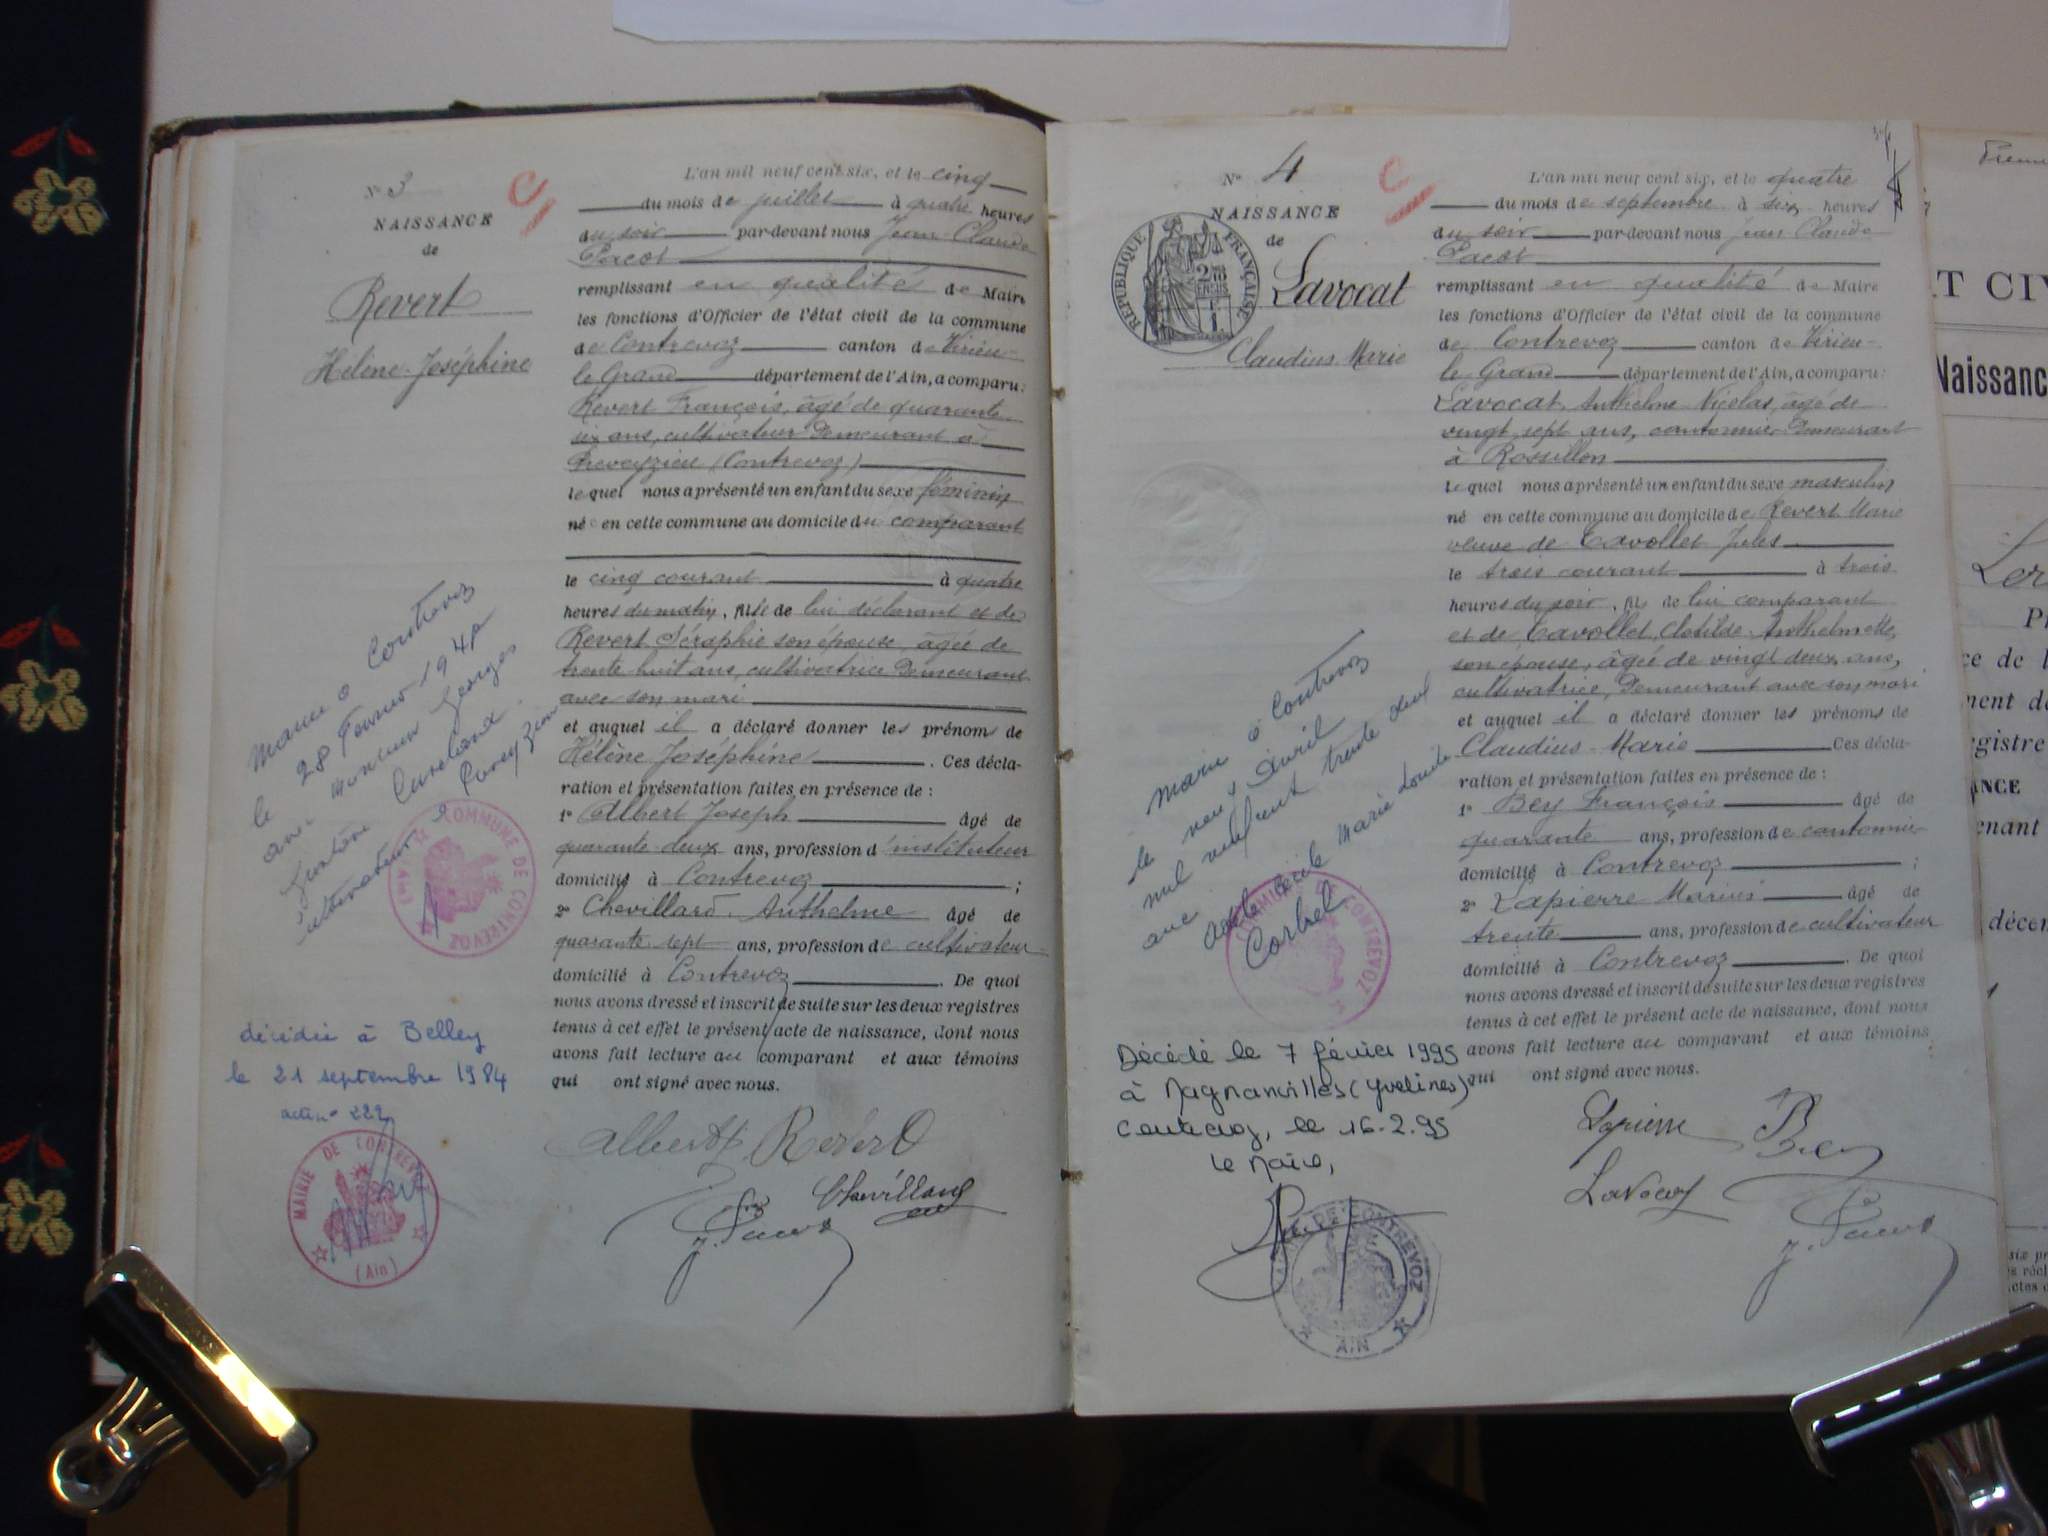 N° 3
NAISSANCE
de
Revert
Hélène Joséphine
L'an mil neuf cent six, et le cinq
du mois de juillet à quatre heures
du soir par-devant nous Jean-Claude
Pacot
remplissant en qualité de Maire
les fonctions d'Officier de l'état civil de la commune
de Contrevoz canton de Virieu-
le Grand département de l'Ain, a comparu:
Revert François, âgé de quarante
six ans, cultivateur demeurant à
Preveyzieu (Contrevoz)
lequel nous a présenté un enfant du sexe féminin
née en cette commune au domicile du comparant
le cinq courant à quatre
heures du matin, fille de lui déclarant et de
Revert Séraphie son épouse, âgée de
trente huit ans, cultivatrice demeurant
avec son mari
et auquel il a déclaré donner les prénoms de
Hélène Joséphine. Ces décla-
ration et présentation faites en présence de :
1° Albert Joseph âgé de
quarante-deux ans, profession d'instituteur
domicilié à Contrevoz ;
2° Chevillard Anthelme âgé de
quarante sept ans, profession de cultivateur
domicilié à Contrevoz. De quoi
nous avons dressé et inscrit de suite sur les deux registres
tenus à cet effet le présent acte de naissance, dont nous
avons fait lecture au comparant et aux témoins
qui ont signé avec nous.
Albert J Revert
Chevillard
J. Pacot
Mariée à Contrevoz
le 28 Février 194
avec Monsieur Georges
cultivateur à
COMMUNE DE CONTREVOZ
(AIN)
décédée à Belley
le 21 septembre 1984
acte n° 229
MAIRIE DE CONTREVOZ
(Ain)
N° 4
NAISSANCE
de
Lavocat
Claudius Marie
RÉPUBLIQUE FRANÇAISE
L'an mil neuf cent six, et le quatre
du mois de septembre à six heures
du soir par-devant nous Jean Claude
Pacot
remplissant en qualité de Maire
les fonctions d'Officier de l'état civil de la commune
de Contrevoz canton de Virieu-
le Grand département de l'Ain, a comparu:
Lavocat Anthelme Nicolas, âgé de
vingt sept ans, cantonnier demeurant
à Rossillon
lequel nous a présenté un enfant du sexe masculin
né en cette commune au domicile de Revert Marie
veuve de Tavollet Jules
le trois courant à trois
heures du soir, fils de lui comparant
et de Tavollet Clotilde Anthelmette,
son épouse, âgée de vingt deux ans,
cultivatrice, demeurant avec son mari
et auquel il a déclaré donner les prénoms de
Claudius-Marie Ces décla-
ration et présentation faites en présence de :
1° Bey François âgé de
quarante ans, profession de cantonnier
domicilié à Contrevoz ;
2° Lapierre Marius âgé de
trente ans, profession de cultivateur
domicilié à Contrevoz. De quoi
nous avons dressé et inscrit de suite sur les deux registres
tenus à cet effet le présent acte de naissance, dont nous
avons fait lecture au comparant et aux témoins
qui ont signé avec nous.
Lapierre Bey
Lavocat
J. Pacot
Marié à Contrevoz
le neuf Avril
mil neuf cent trente deux
avec Cécile Marie Louise
Corbet
COMMUNE DE CONTREVOZ
Décédé le 7 février 1995
à Magnanville (Yvelines)
Contrevoz, le 16-2-95
Le Maire,
MAIRIE DE CONTREVOZ
AIN
T CIV
Naissanc
ce de l
ment de
gistre
ANCE
enant
décem